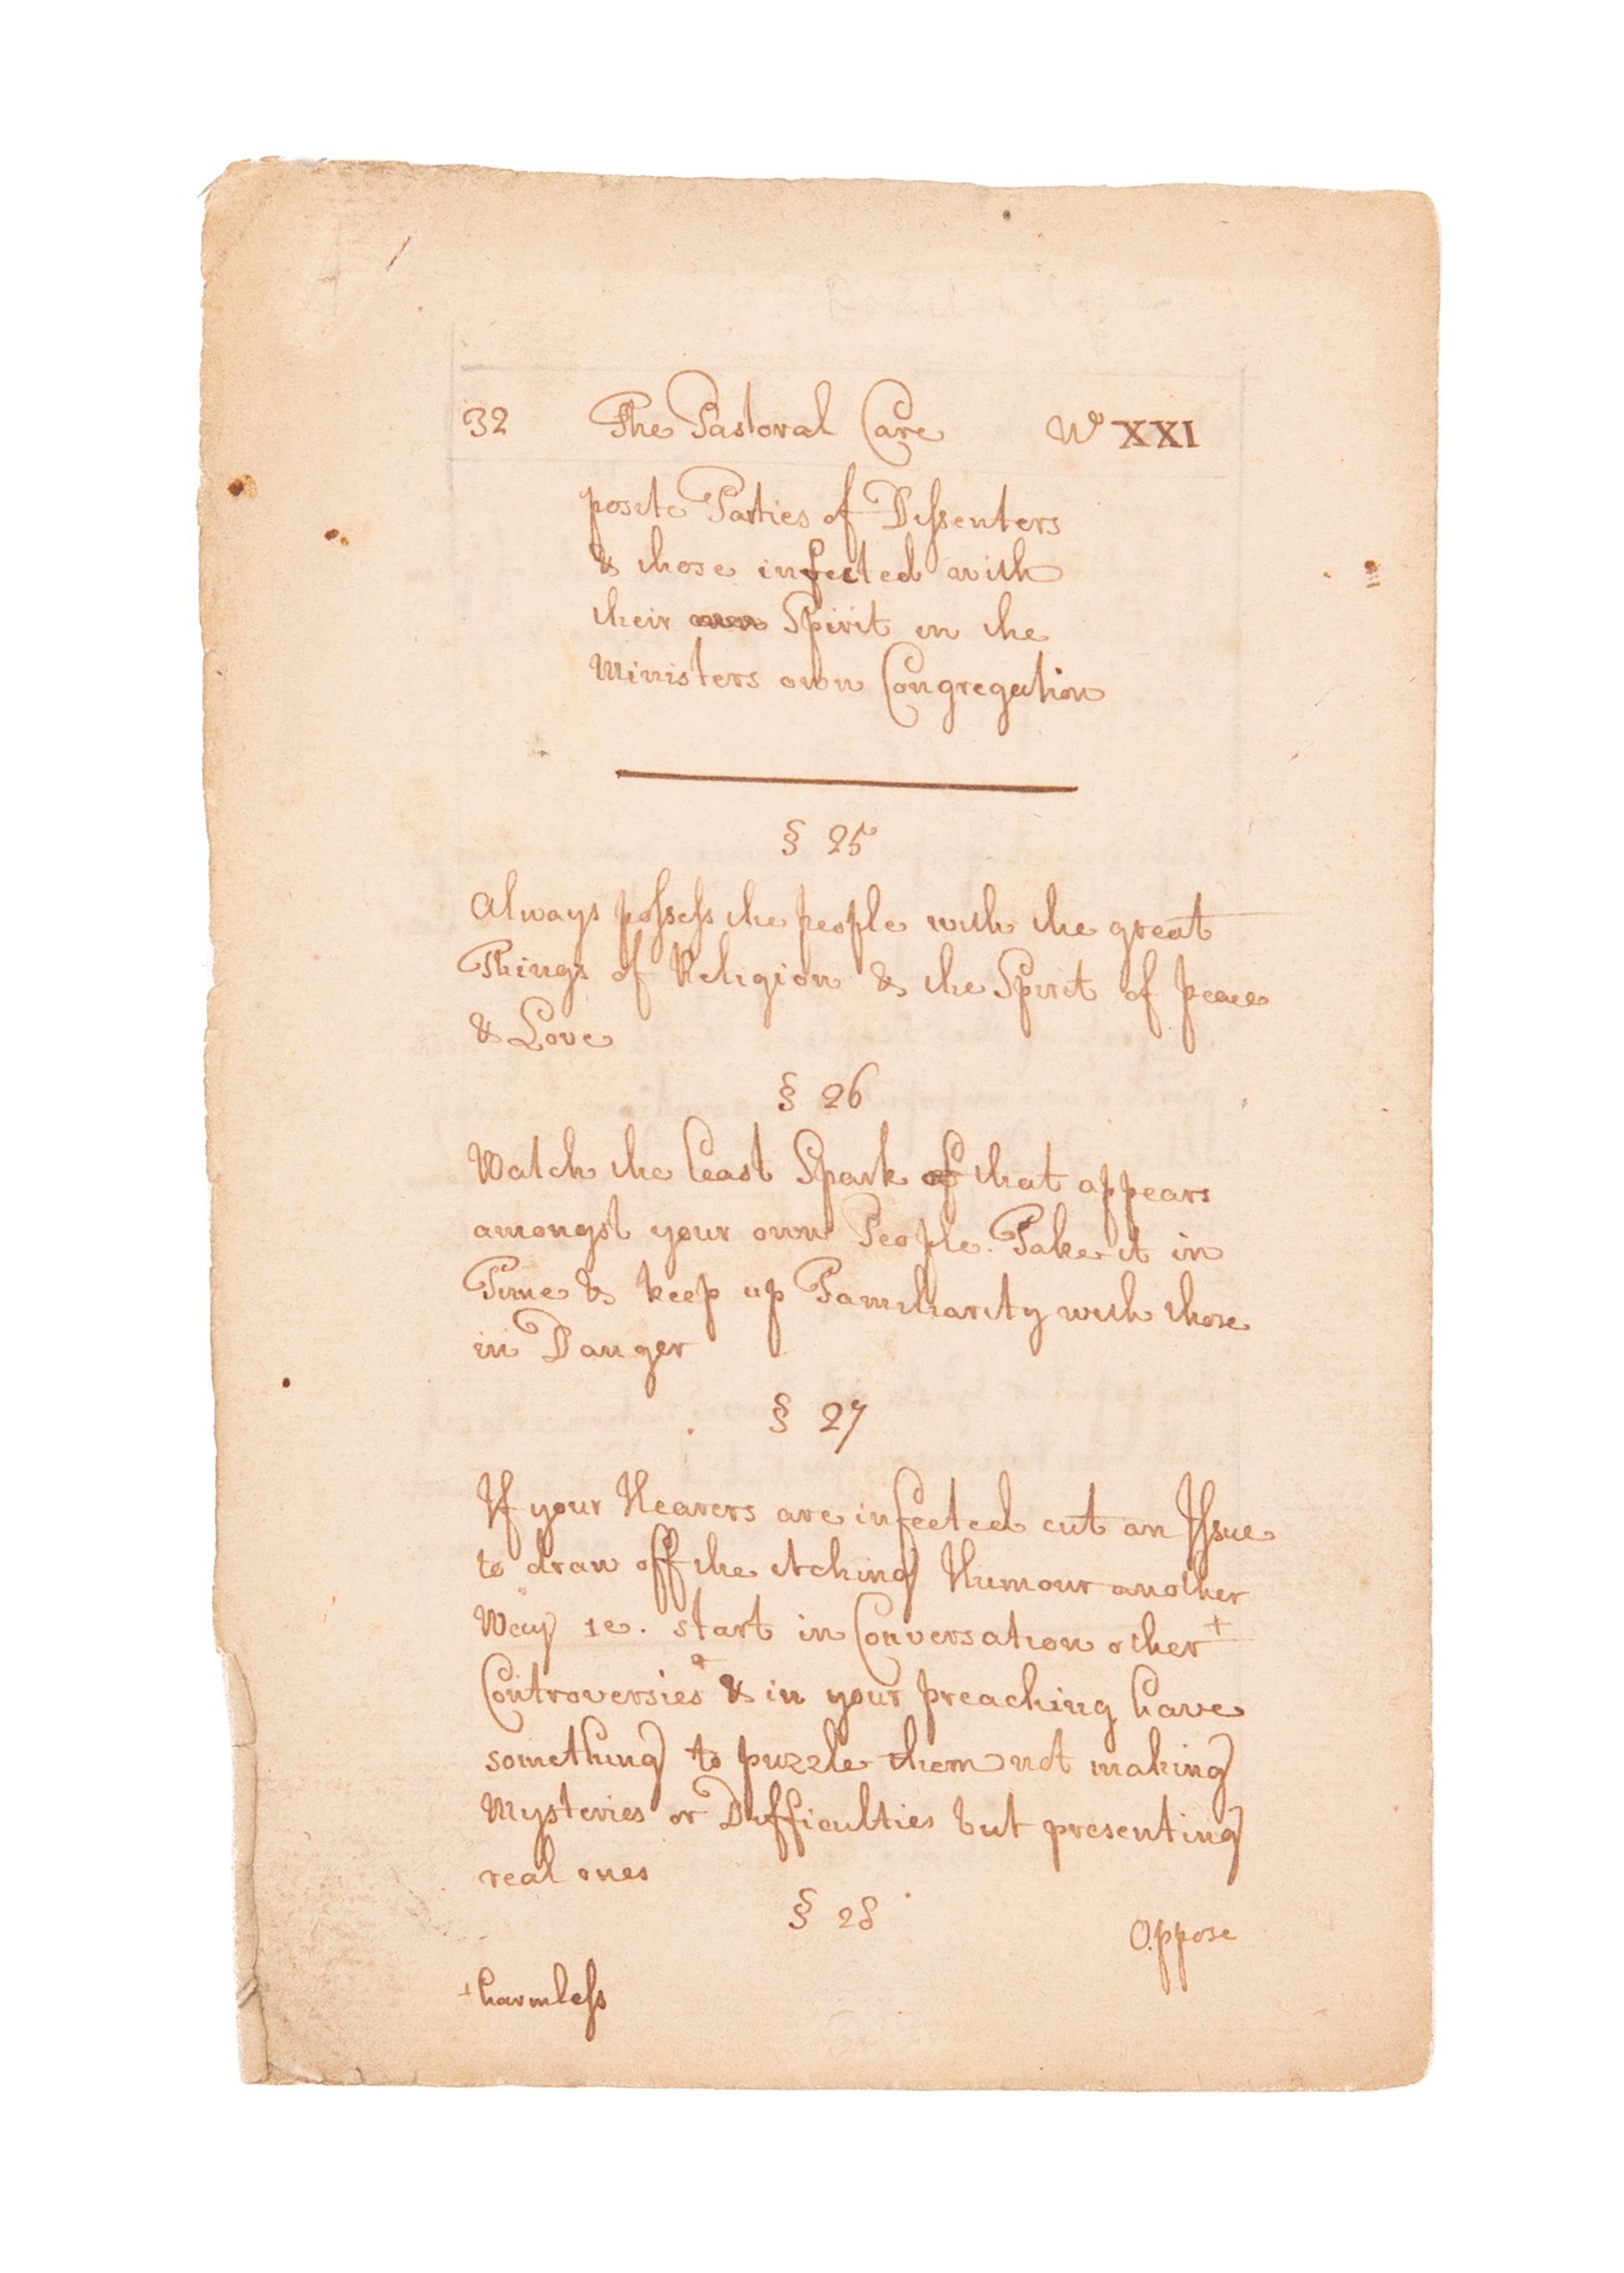 32 The Pastoral Care Wo XXI
posite Parties of Dissenters
& those infected with
their Spirit in the
Ministers own Congregation
§ 25
Always possess the people with the great
Things of Religion & the Spirit of peace
& Love
§ 26
Watch the least Spark of that appears
amongst your own People. Take it in
Time & keep up Familiarity with those
in Danger
§ 27
If your Hearers are infected cut an Issue
to draw off the itching Humour another
Way ie. start in Conversation other +
Controversies & in your preaching have
something to puzzle them not making
Mysteries or Difficulties but presenting
real ones
§ 28
Oppose
+ harmless